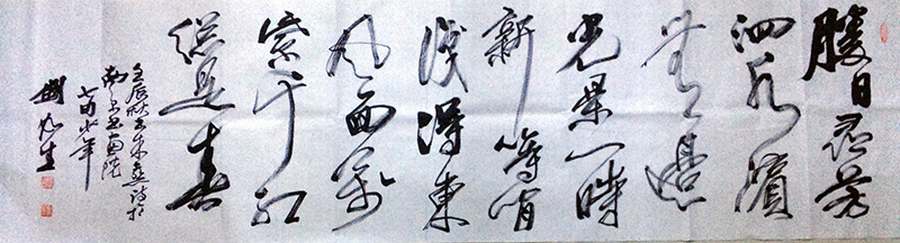 勝日尋芳
泗水濱
無邊
光景一時
新等閒
識得東
風面萬
紫千紅
總是春
壬辰秋书朱熹詩於
南京书畫院
七旬少年
生